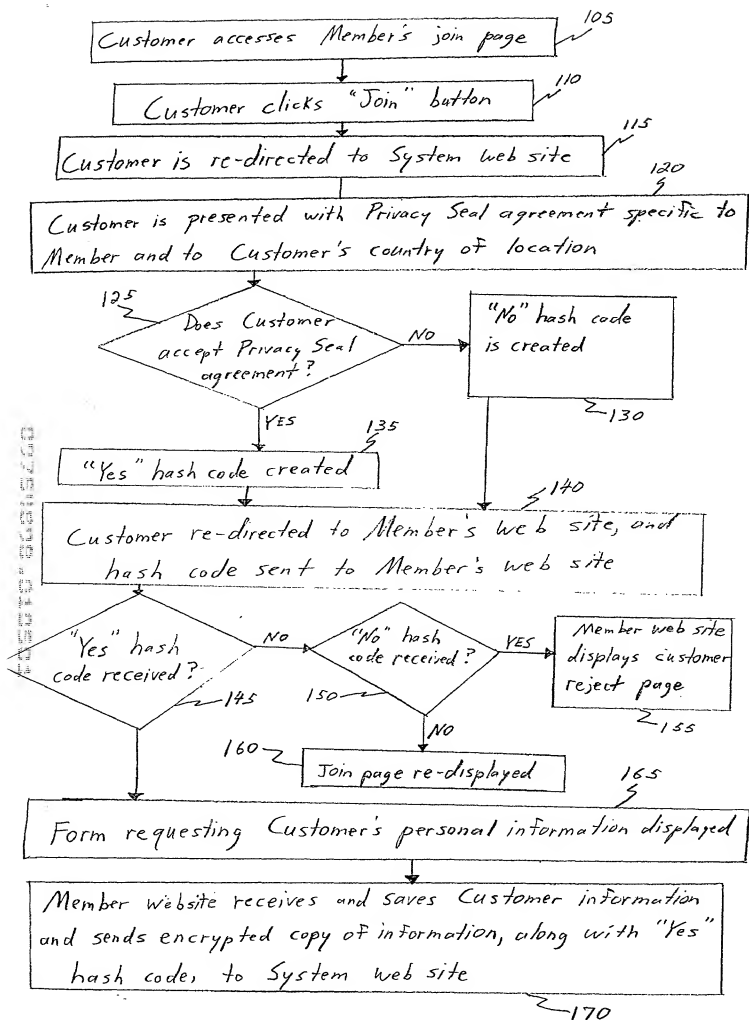 105
Customer accesses Member's join page
110
Customer clicks "Join" button
115
Customer is re-directed to System web site
120
Customer is presented with Privacy Seal agreement specific to
Member and to Customer's country of location
125
Does Customer
accept Privacy Seal
agreement?
NO
"No" hash code
is created
130
YES
135
"Yes" hash code created
140
Customer re-directed to Member's web site, and
hash code sent to Member's web site
"Yes" hash
code received?
145
NO
"No" hash
code received?
150
YES
Member web site
displays customer
reject page
155
NO
160
Join page re-displayed
165
Form requesting Customer's personal information displayed
Member website receives and saves Customer information
and sends encrypted copy of information, along with "Yes"
hash code, to System web site
170